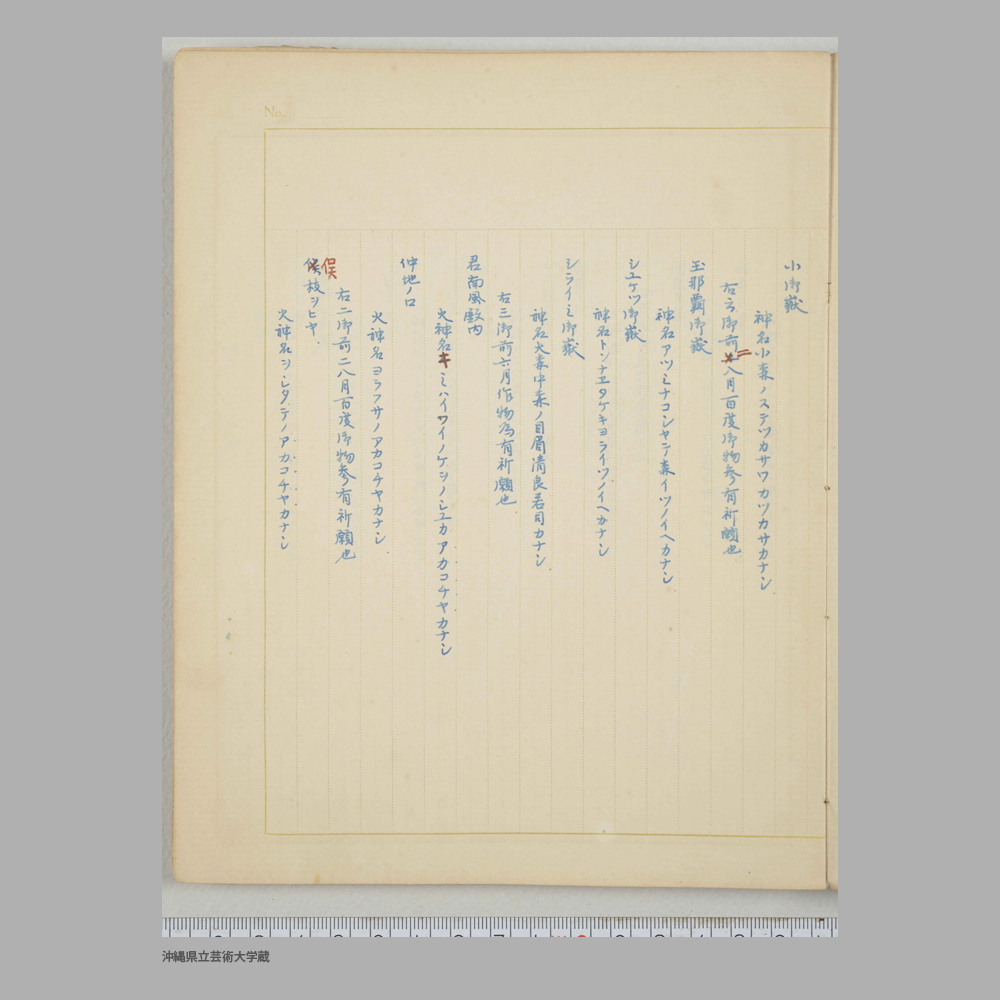 小御嶽
神名小森ノステツカサワカツカサカナシ
右六御前二八月百度御物参有祈願也
玉那覇御嶽
神名アツミナコシヤテ森イツノイヘカナシ
シユケツ御嶽
神名トンナヱタケキヨライツノイヘカナシ
シライミ御嶽
神名大森中森ノ目眉清良若司カナシ
右三御前六月作物為有祈願也
君南風殿内
火神名キミハイワイノケシノシユカアカコチヤカナシ
仲地ノロ
火神名ヨラフサノアカコチヤカナシ
右二御前二八月百度御物参有祈願也
俣枝ヲヒヤ
火神名シシタテノアカコチヤカナシ
No.
沖縄県立芸術大学蔵